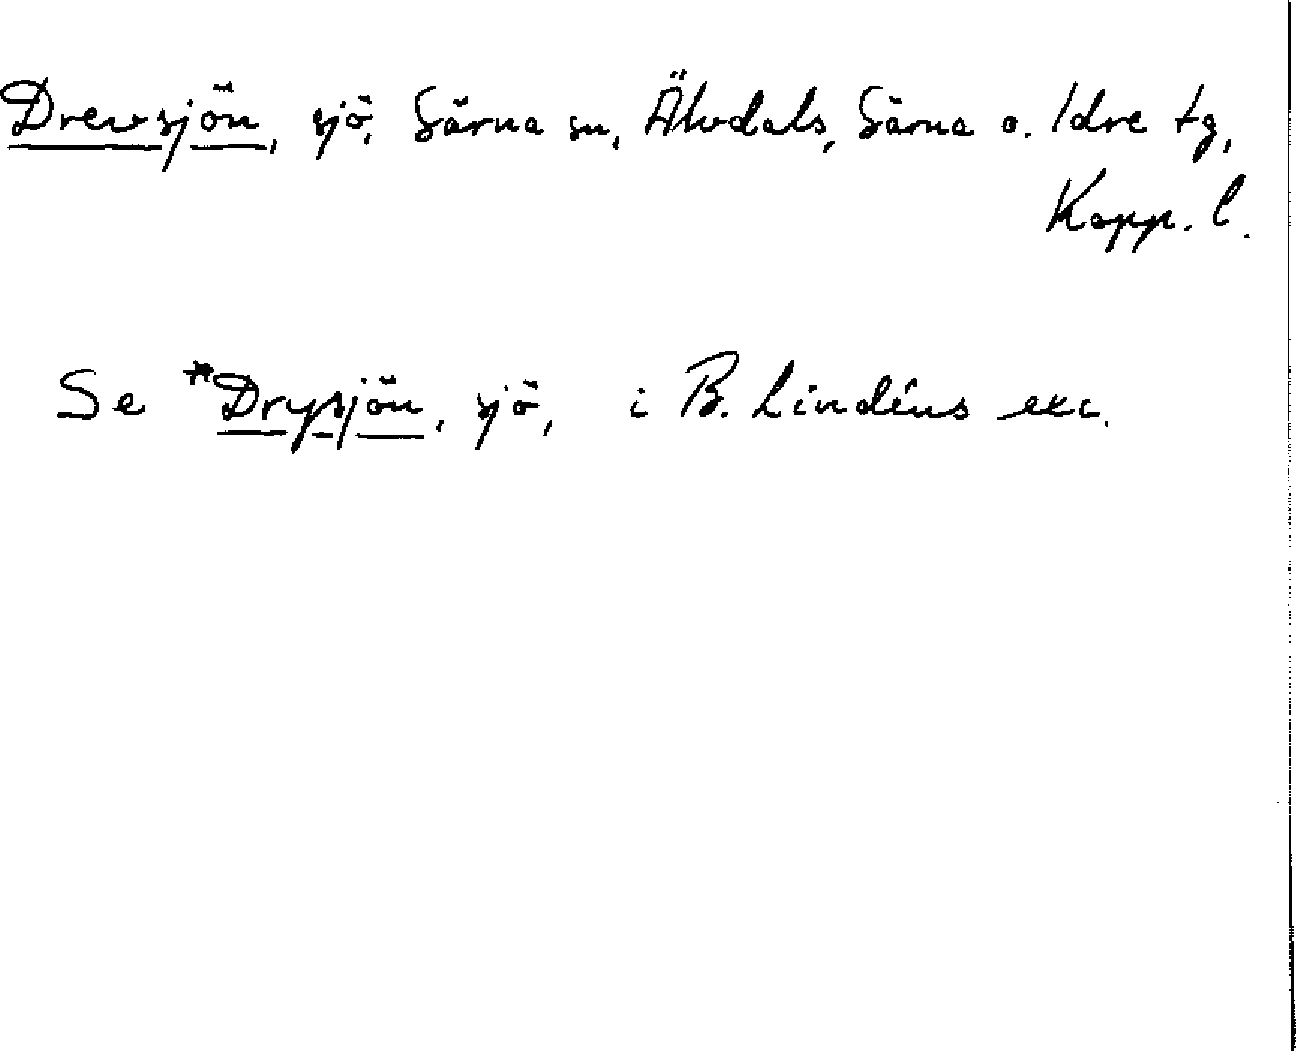 Drevsjön, sjö, Särna sn, Älvdals, Särna o. Idre tg,
Kopp. l.
Se *Drysjön, sjö, i B. Lindéns exc.